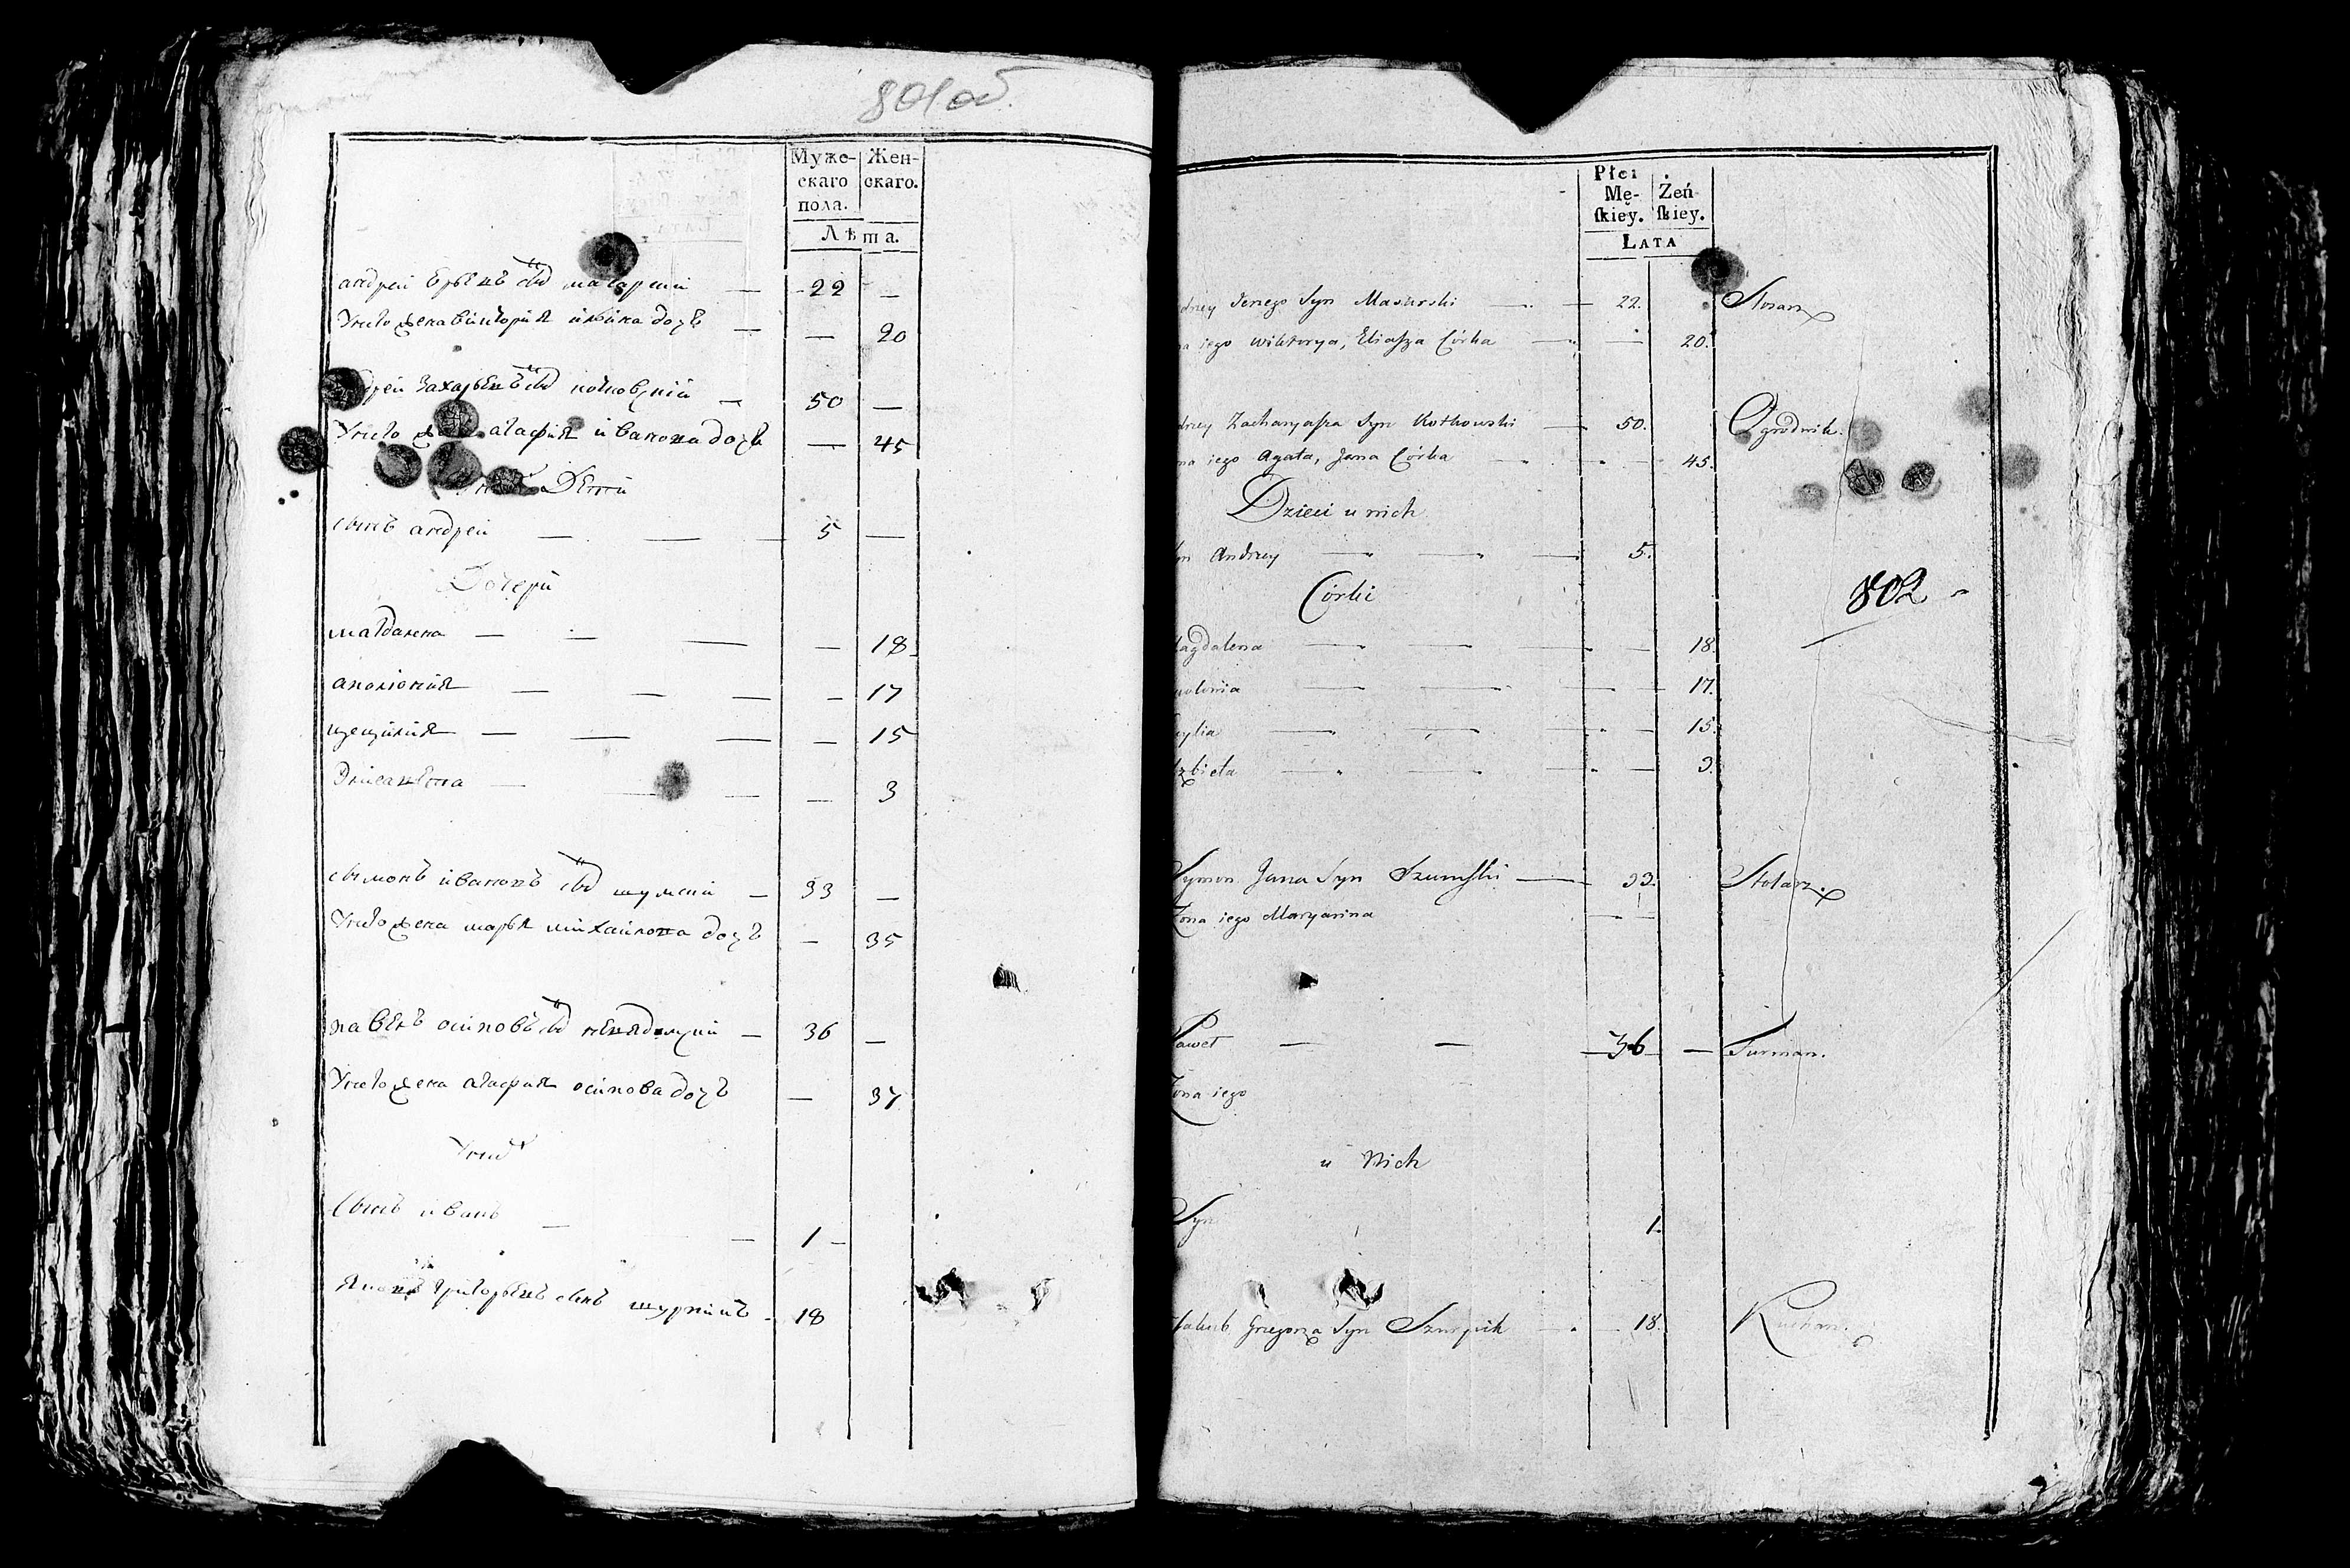 801 об.
Муже-
скаго
пола.
Жен-
скаго.
Лѣта.
андрей Юрьевъ сынъ мазурский — 22 —
У него жена викторія ильина дочь — — 20
андрей Захарьевъ сынъ котковский — 50 —
У него жена агафия иванова дочь — 45
У них Дети
сынъ андрей — — — 5 —
Дочери
магдалена — — — — 18
аполония — — — — 17
цецилия — — — — 15
Элисавета — — — — 3
сымонъ ивановъ сынъ шумский — 33 —
У него жена марья михайлова дочь — 35
павелъ осиповъ сынъ — 36 —
У него жена агафия осипова дочь — 37
У них
Сынъ иванъ — — 1 —
Якова Григорьевъ сынъ 18
Płci
Mę-
ſkiey.
Żeń-
ſkiey.
LATA
drzey Jerzego Syn Mazurski — — 22. Stolarz
na iego Wiktorya, Eliaſza Córka — — 20.
drzey Zacharyaſza Syn Kotkowski — 50. Ogrodnik.
na iego Agata, Jana Córka — — 45.
Dzieci u nich
yn Andrzey — — — 5.
Córki
802
Magdalena — — — — 18.
polonia — — — — 17.
cylia — — — — 15.
lzbieta — — — — 3.
Symon Jana Syn Szumſki — 33. Stolarz.
Żona iego Maryanna — —
Paweł — — 36 — Furman.
Żona iego
u Nich
Syn 1.
Jakub Grzegorza Syn Szurpik — 18. Kuchar.